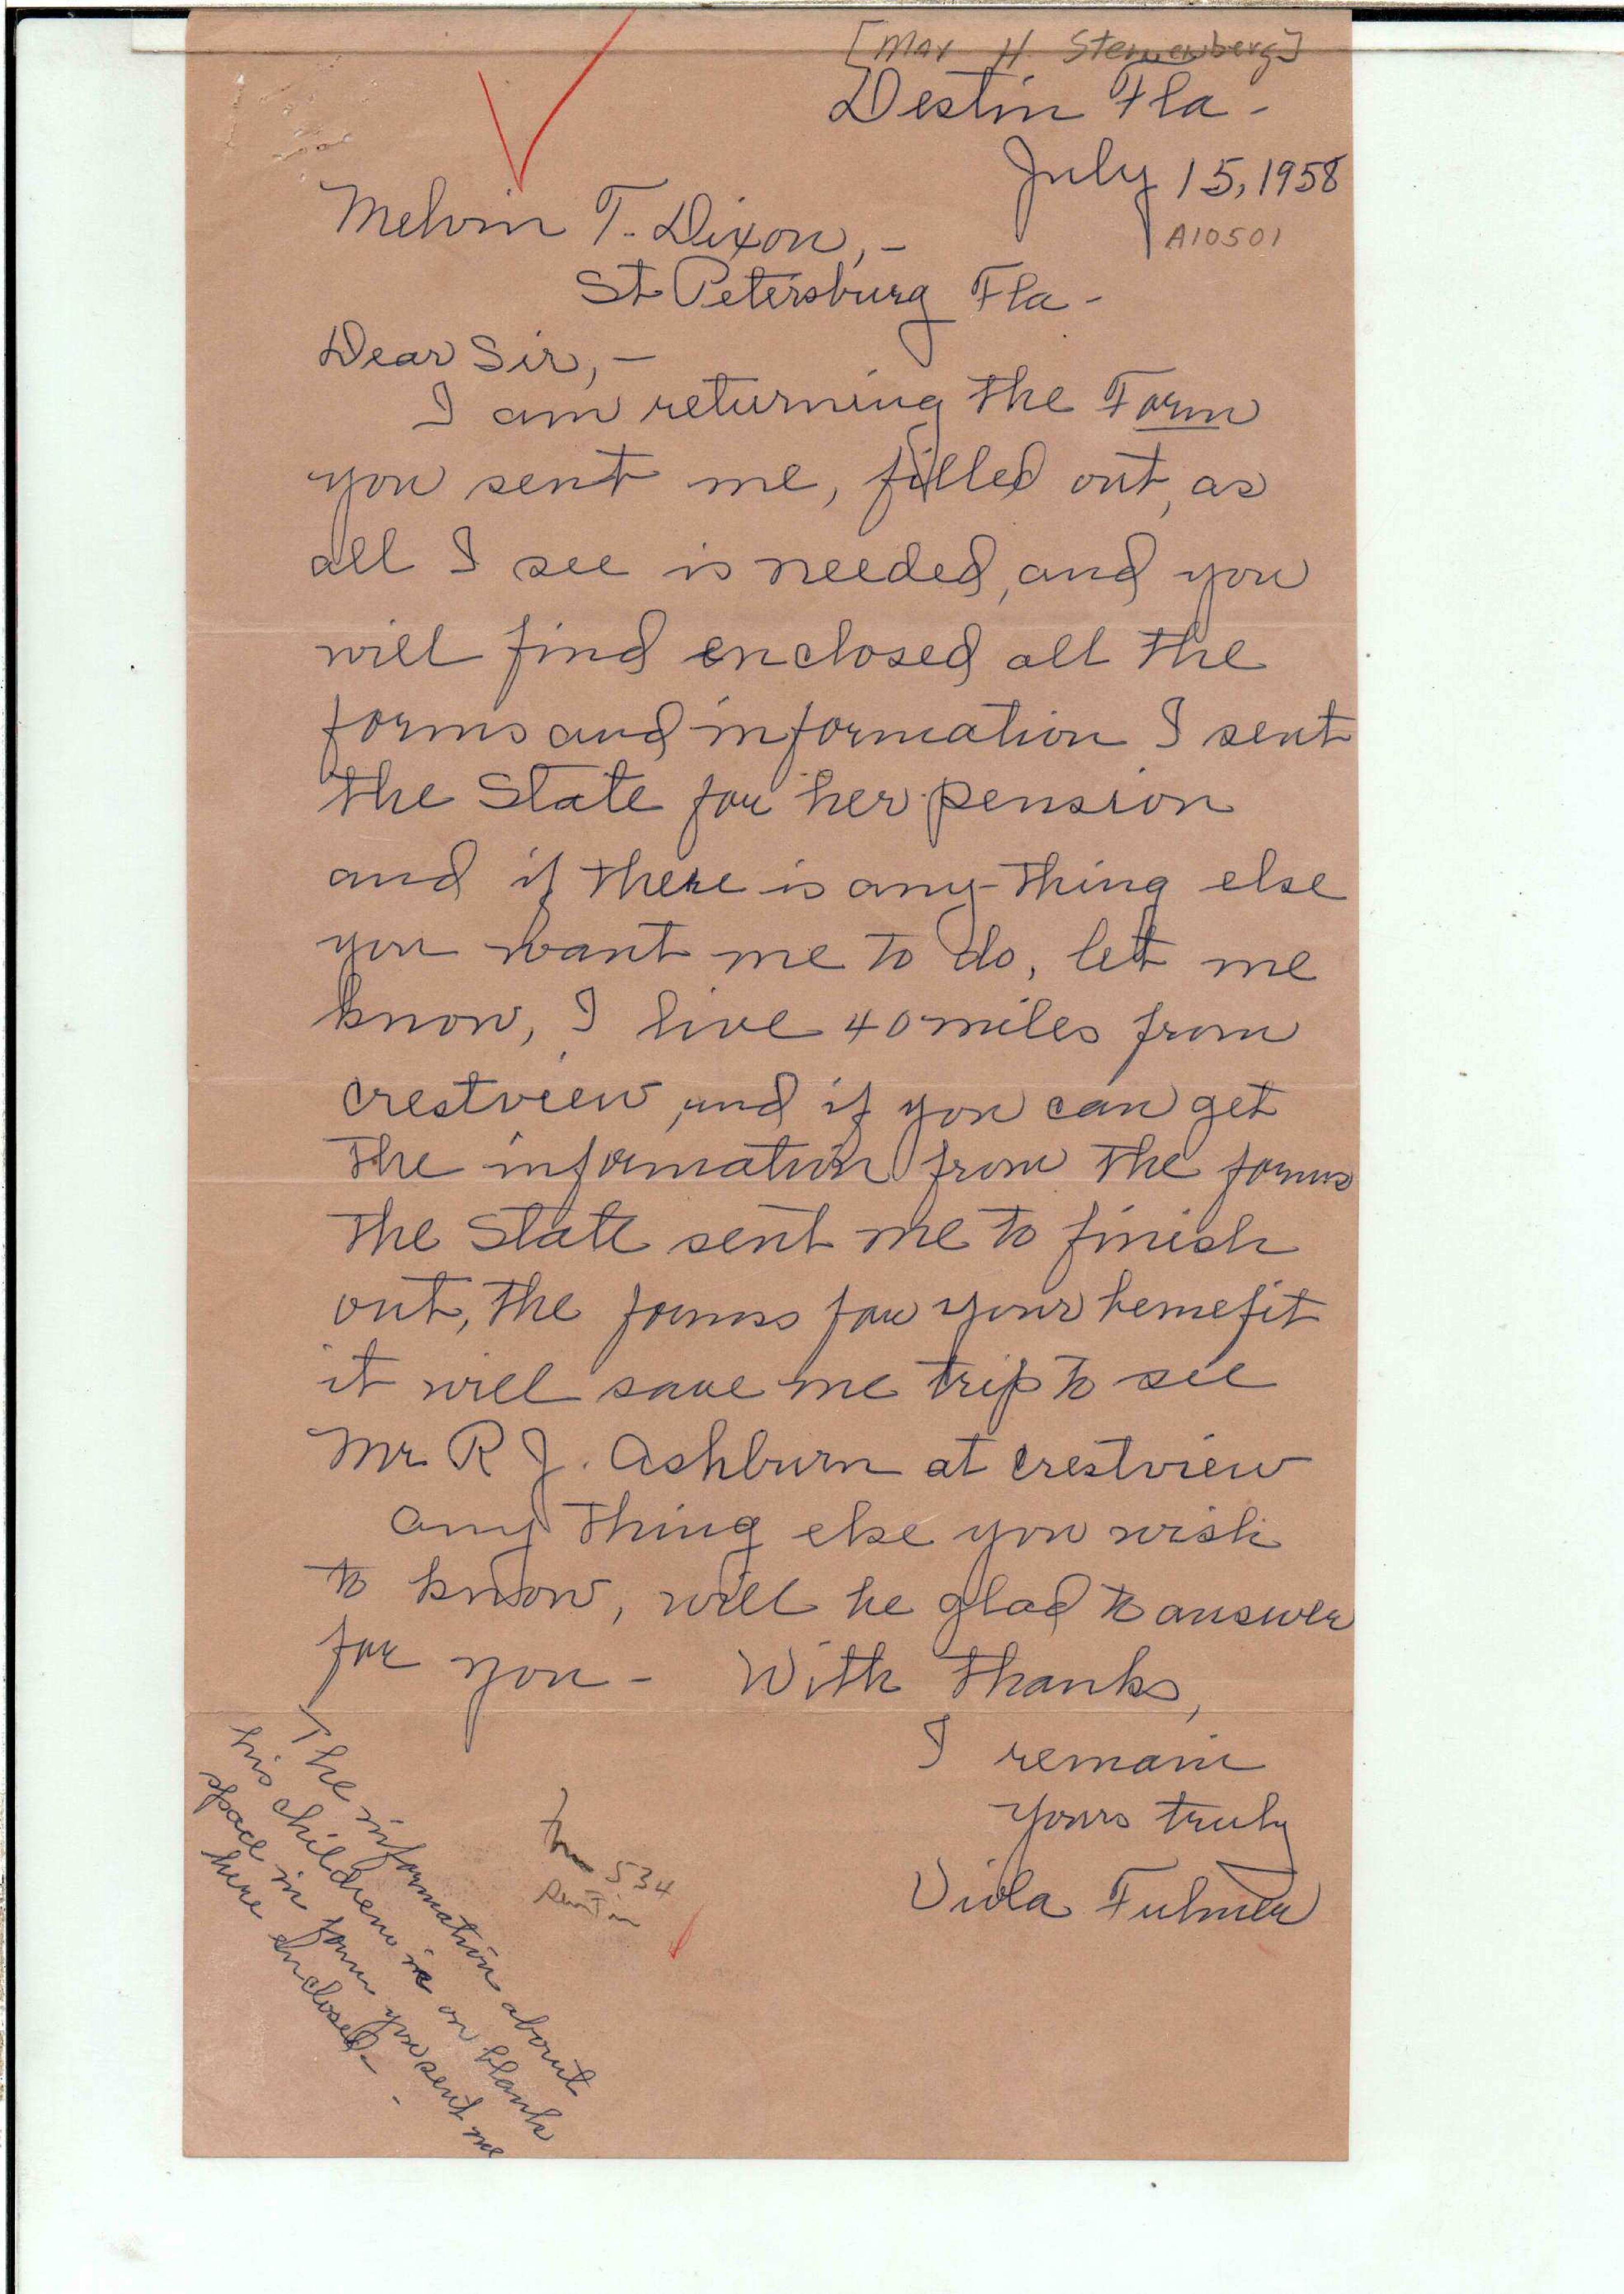 [Max H. Sternenberg]
Destin Fla -
July 15, 1958
A10501
Melvin T. Dixon, -
St Petersburg Fla -
Dear Sir, -
I am returning the Form
you sent me, filled out, as
all I see is needed, and you
will find enclosed all the
forms and information I sent
the State for her pension
and if there is any-thing else
you want me to do, let me
know, I live 40 miles from
crestview, and if you can get
the information from the forms
the State sent me to finish
out, the forms for your benefit
it will save me trip to see
Mr. R J. Ashburn at crestview
any thing else you wish
to know, will be glad to answer
for you - With thanks,
I remain
yours truly
Viola Fulmer
The information about
his children is on blank
space in form you sent me
here enclosed - -
534